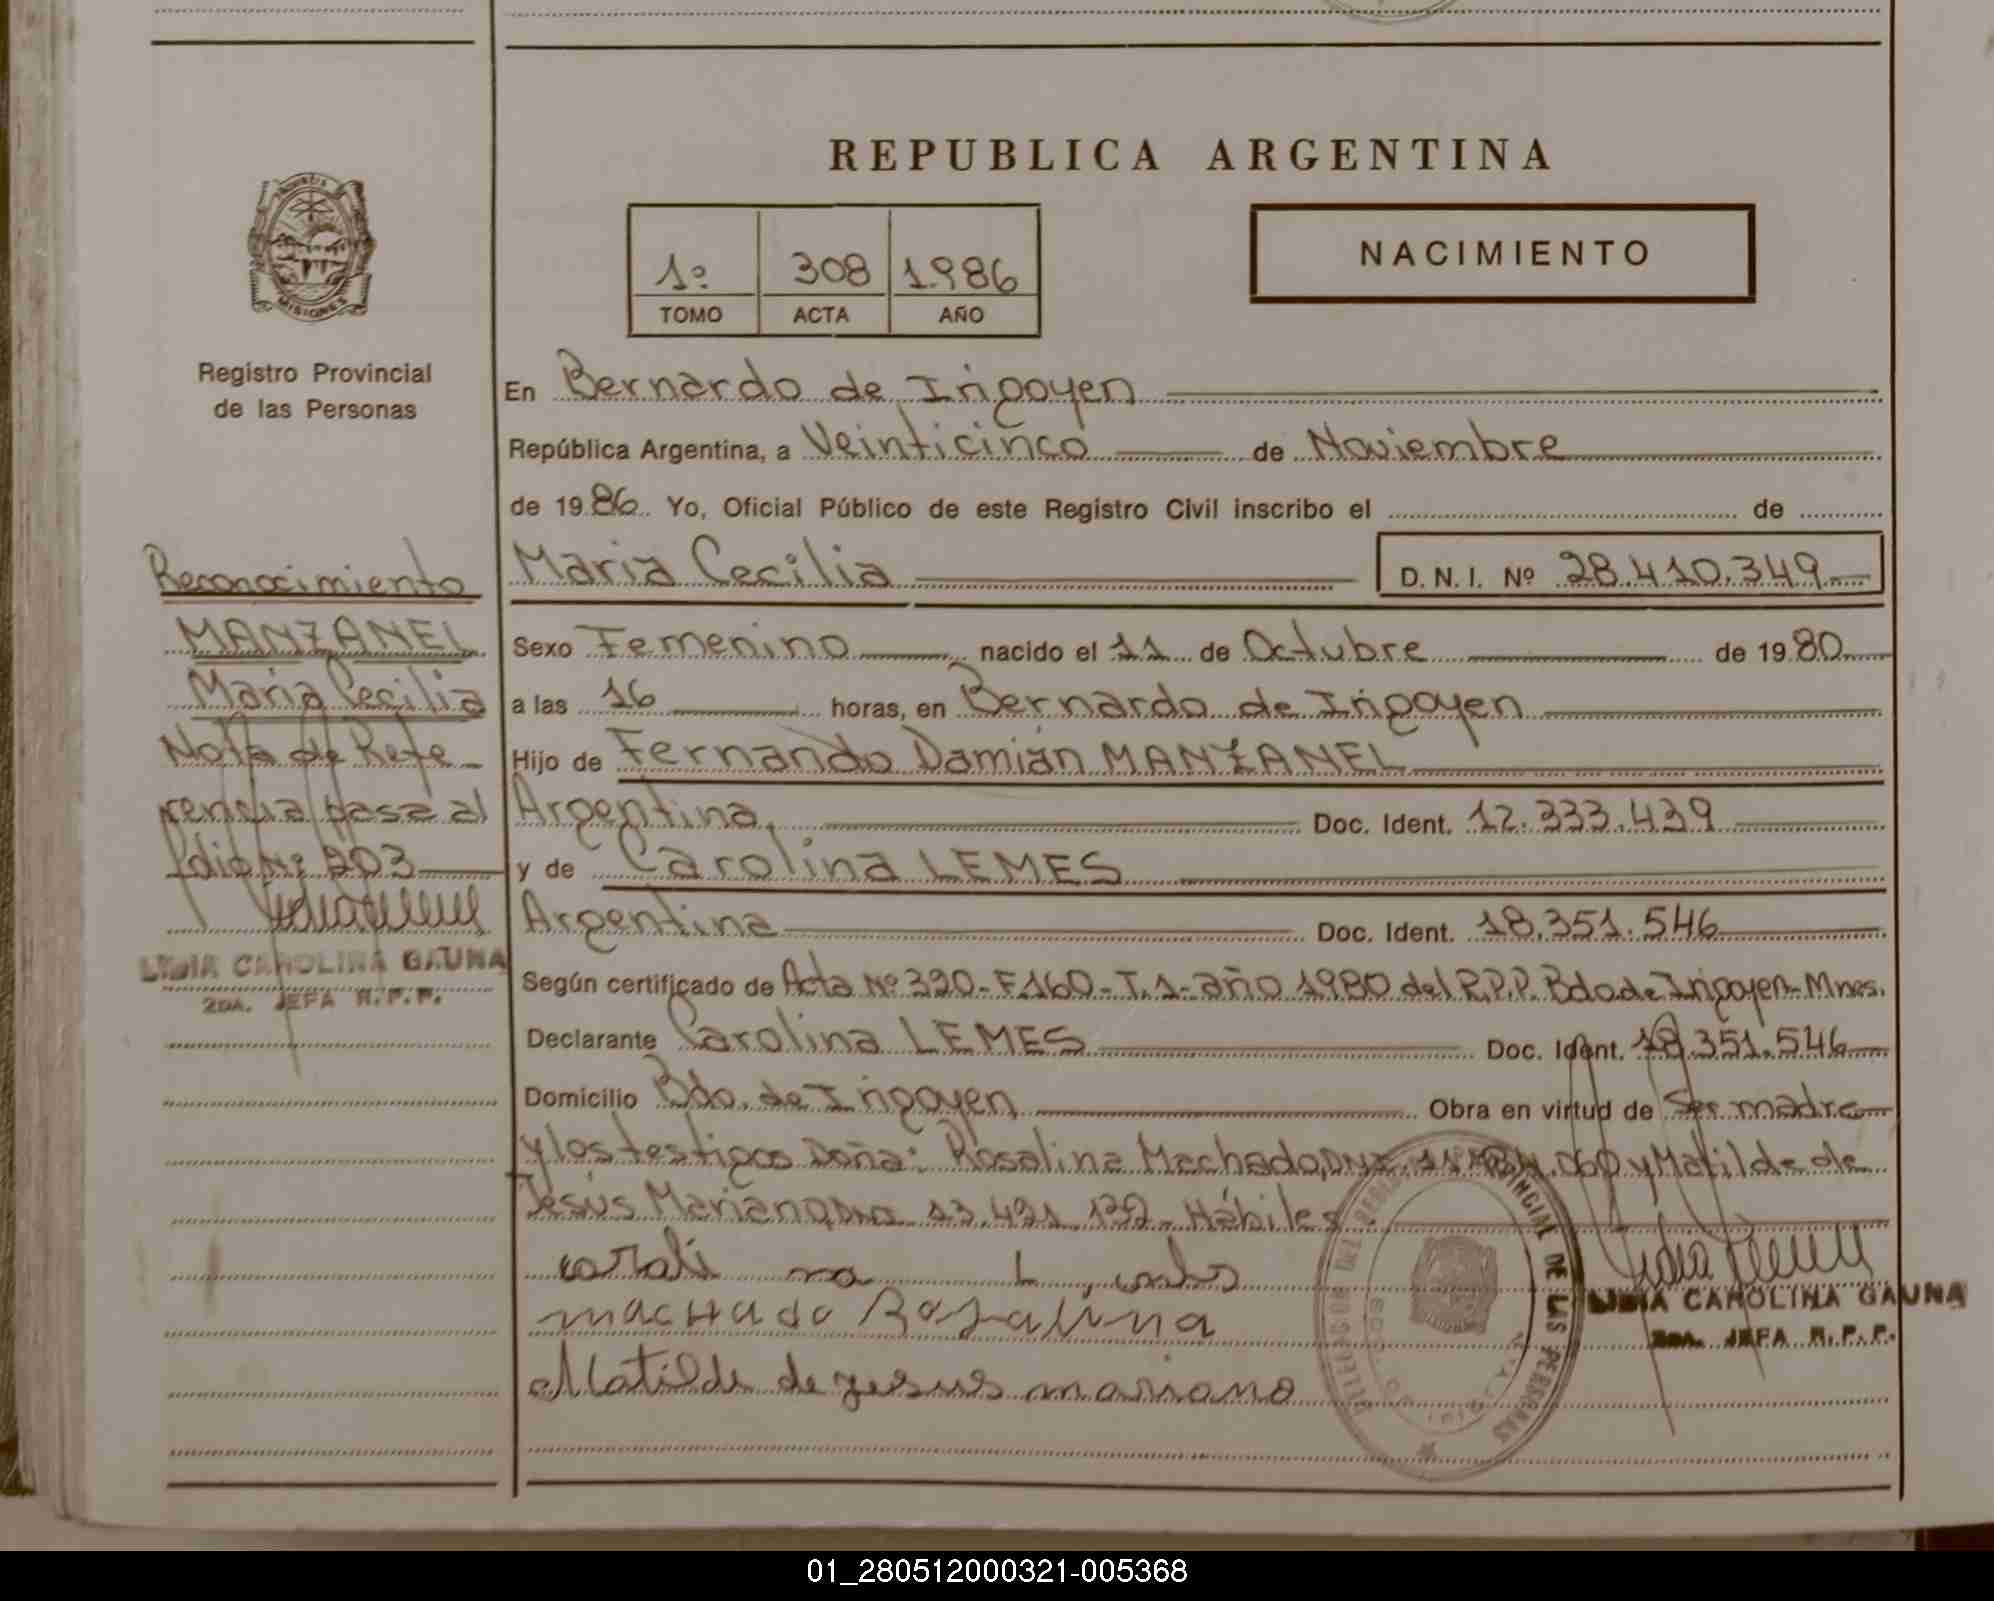 REPUBLICA ARGENTINA
NACIMIENTO
1º 308 1.986
TOMO ACTA AÑO
MISIONES
Registro Provincial
de las Personas
En Bernardo de Irigoyen
República Argentina, a Veinticinco de Noviembre
de 1986. Yo, Oficial Público de este Registro Civil inscribo el de
Maria Cecilia D. N. I. Nº 28.410.349
Sexo Femenino nacido el 11 de Octubre de 1980
a las 16 horas, en Bernardo de Irigoyen
Hijo de Fernando Damián MANZANEL
Argentina, Doc. Ident. 12.333.439
y de Carolina LEMES
Argentina Doc. Ident. 18.351.546
Según certificado de Acta Nº 320-F.160-T.1-año 1980 del R.P.P. Bdo de Irigoyen-Mnes.
Declarante Carolina LEMES Doc. Ident. 18.351.546
Domicilio Bdo. de Irigoyen Obra en virtud de Ser madre
y los testigos Doña: Rosalina Machado, y Matilde de
Jesús Mariano, Hábiles
machado Rosalina
Matilde de jesus mariano
Reconocimiento
MANZANEL
Maria Cecilia
Nota de Refe-
rencia pasa al
folio Nº 203
LIDIA CAROLINA GAUNA
2DA. JEFA R.P.P.
LIDIA CAROLINA GAUNA
2DA. JEFA R.P.P.
01_280512000321-005368